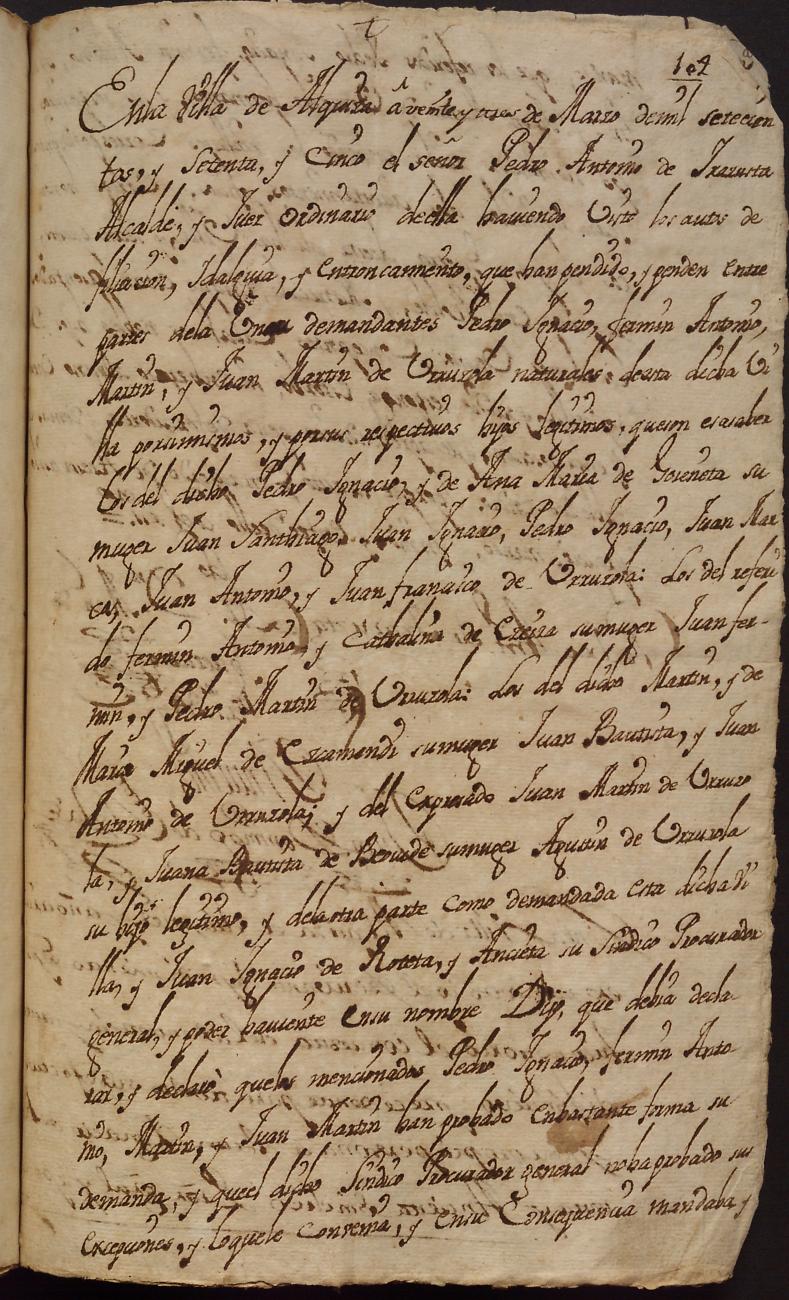 104
En la Villa de Alquiza à veinte y tres de Marzo demil setecien
tos, y Setenta, y Cinco el señor Pedro Antonio de Irazusta
Alcalde, y Juez Ordinario deella haviendo Visto los autos de
filiacion, Idalguia, y entroncamiento, que han pendido, y penden entre
partes dela Una demandantes Pedro Ignacio, fermin Antonio,
Martin, y Juan Martin de Urruzola naturales desta dicha Vi
lla porsimismos, y porsus respectivos hijos legitimos, queson asaber
Los del dicho Pedro Ignacio, y de Ana Maria de Goseneta su
muger Juan Santhiago, Juan Ignacio, Pedro Ignacio, Juan Mar
cos, Juan Antonio, y Juan francisco de Urruzola: Los del referi
do fermin Antonio, y Cathalina de sumuger Juan fer-
min, y Pedro Martin de Urruzola: Los del dicho Martin, y de
Maria Miguel de Ezcamendi sumuger Juan Bautista, y Juan
Antonio de Urruzola; y del Expresado Juan Martin de Urruzo
la, y Juana Bautista de sumuger Agustin de Urruzola
su hijo legitimo, y delaotra parte como demandada esta dicha Vi
lla, y Juan Ignacio de Roteta, y Ancieta su Sindico Procurador
general, y poder haviente ensu nombre Dijo, que debia decla-
rar, y declarò quelos mencionados Pedro Ignacio, fermin Anto
nio, Martin, y Juan Martin han probado enbastante forma su
demanda, y queel dicho Sindico Procurador general nohaprobado sus
excepciones, y loquele convenia, y ensu Consequencia mandaba, y